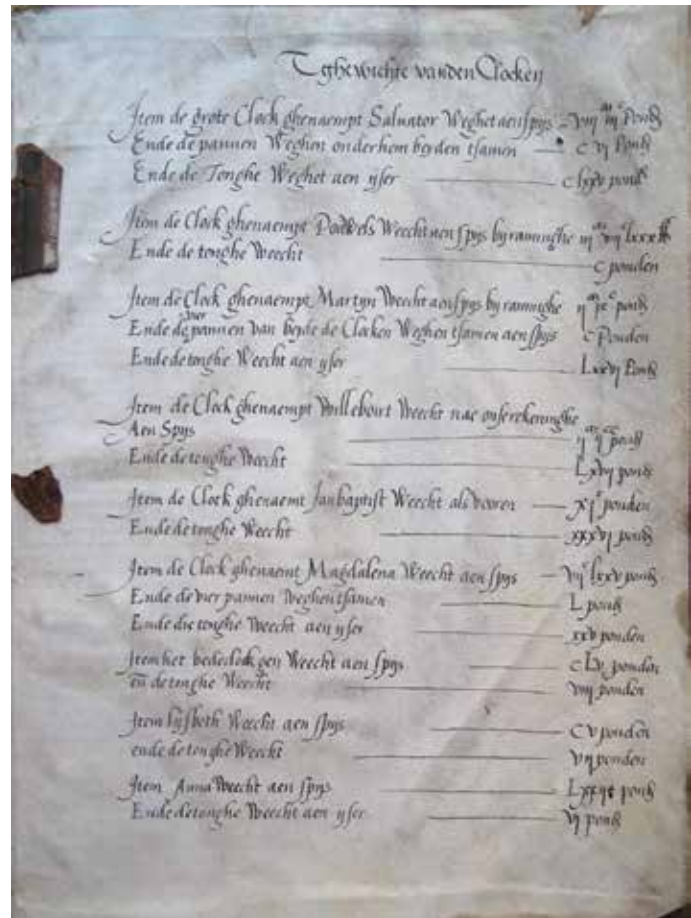 Tghewichte vanden Clocken
Item de grote Clock ghenaempt Saluator Weghet aen spys viij m iij c Pond
Ende de pannen Weghen onder hem beyden tsamen c vj Pond
Ende de Tonghe Weghet aen yser c lxxv pond
Item de Clock ghenaempt Weecht aen spys by raminghe
Ende de tonghe Weecht c ponden
Item de Clock ghenaempt Martyn Weecht aen spys by raminghe pond
Ende de vier pannen van beyde de Clocken Weghen tsamen aen spys c Ponden
Ende de tonghe Weecht aen yser Lxxvj Pond
Item de Clock ghenaempt Willebort Weecht nae onse rekeninghe
Aen Spys ij m ij c pond
Ende de tonghe Weecht Lxvij pond
Item de Clock ghenaemt Janbaptist Weecht als vooren xj c ponden
Ende de tonghe Weecht xxxvj pond
Item de Clock ghenaemt Magdalena Weecht aen spys vij c lxxv pond
Ende de vier pannen Weghen tsamen L pond
Ende die tonghe Weecht aen yser xxv ponden
Item het bedeclockgen Weecht aen spys c Lv ponden
en de tonghe Weecht viij ponden
Item lijsbeth Weecht aen spys C v ponden
ende de tonghe Weecht vij ponden
Item Anna Weecht aen spys pond
Ende de tonghe Weecht aen yser vj pond